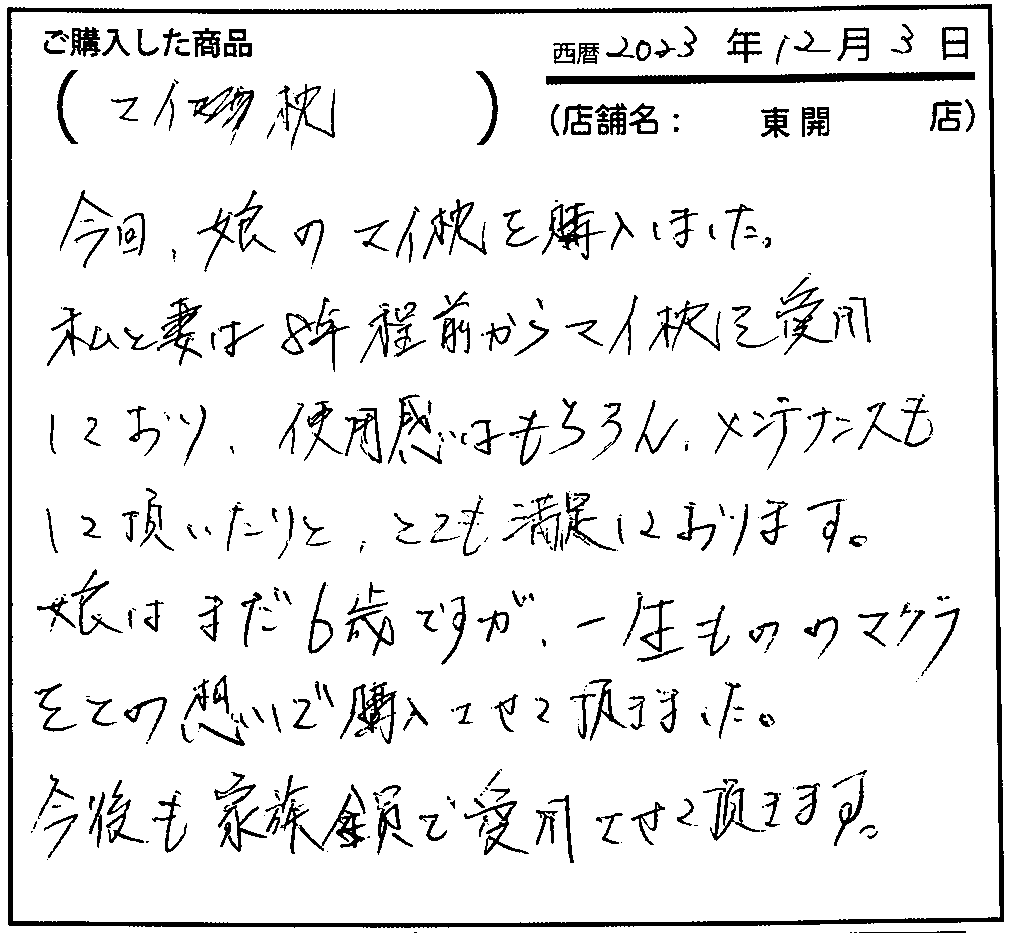 ご購入した商品
西暦2023年12月3日
(マイ枕)
(店舗名: 東開 店)
今回、娘のマイ枕を購入しました。
私と妻は8年程前からマイ枕を愛用
しており、使用感はもちろん、メンテナンスも
して頂いたりと、とても満足しております。
娘はまだ6歳ですが、一生もののマクラ
をとの想いで購入させて頂きました。
今後も家族全員で愛用させて頂きます。